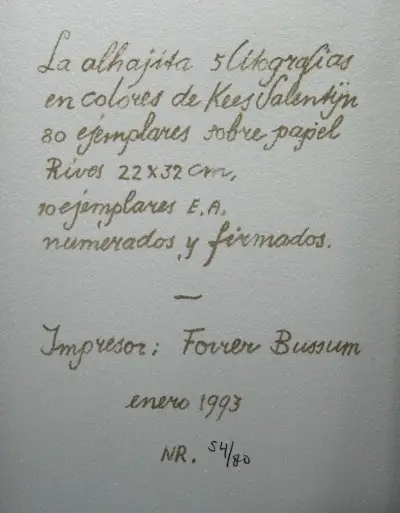 La alhajita 5 litografias
en colores de Kees Salentijn
80 ejemplares sobre papel
Rives 22x32 cm,
10 ejemplares E.A.
numerados y firmados.
—
Impresor: Forrer Bussum
enero 1993
NR. 54/80